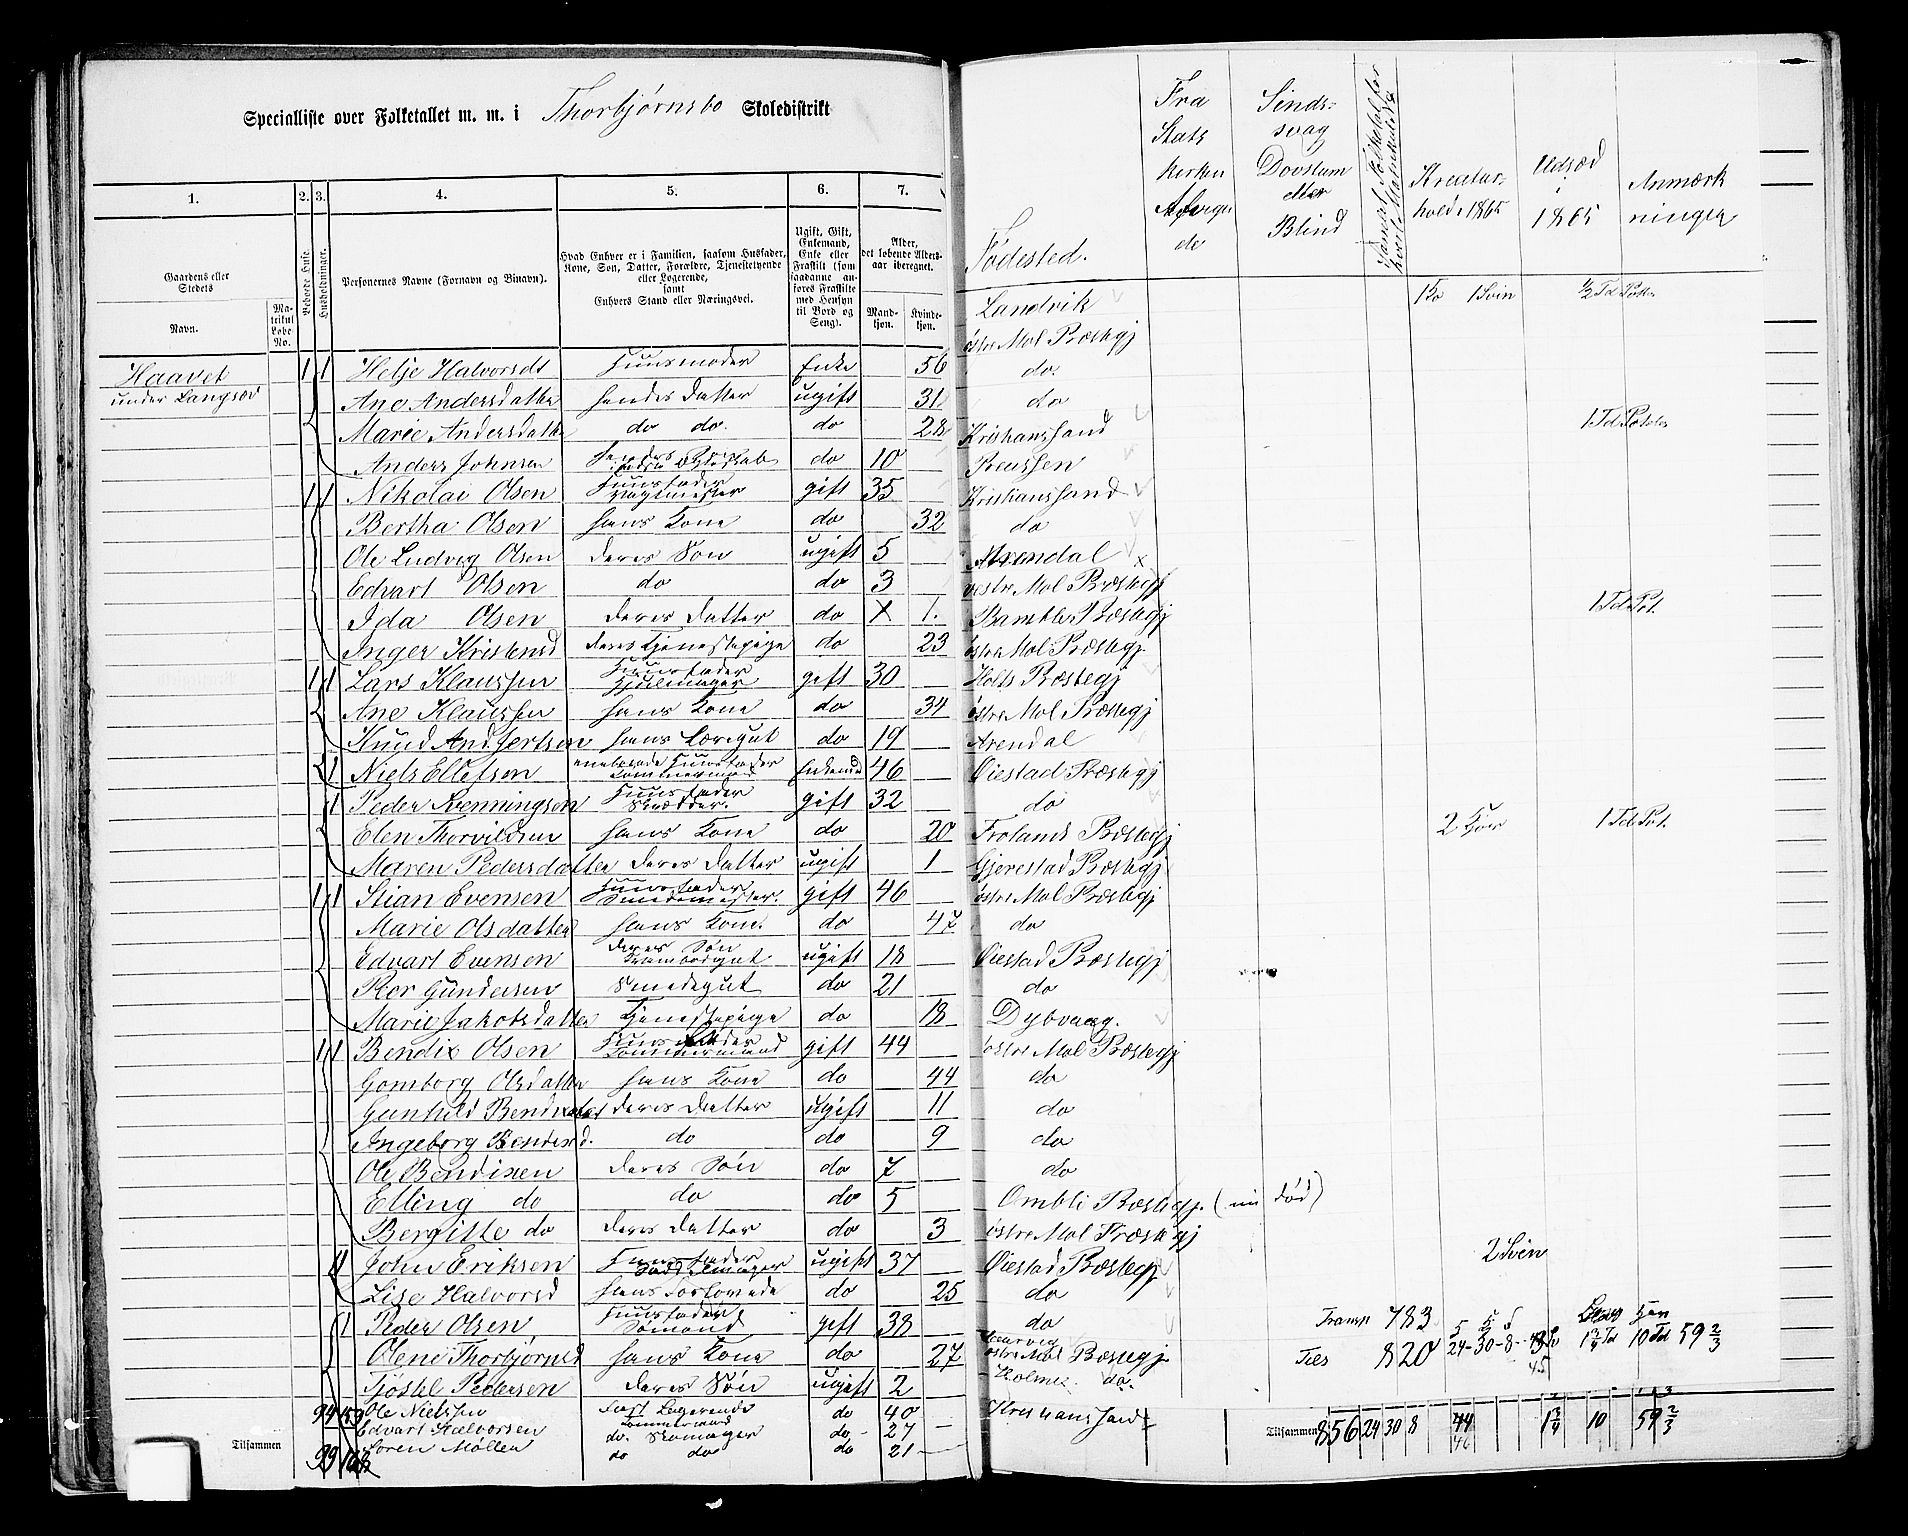 Specialliste over Folketallet m. m. i Thorbjørnsbo Skoledistrikt
1. 2. 3. 4. 5. 6. 7.
Gaardens eller Stedets
Navn.
Matrikul Løbe-No.
Beboede Huse
Husholdninger.
Personernes Navne (Fornavn og Binavn).
Hvad Enhver er i Familien, saasom Husfader, Kone, Søn, Datter, Forældre, Tjenestetyende eller Logerende, samt Enhvers Stand eller Næringsvei.
Ugift, Gift, Enkemand, Enke eller Fraskilt (som saadanne anføres Fraskilte med Hensyn til Bord og Seng).
Alder, det løbende Aldersaar iberegnet.
Mandkjøn. Kvindekjøn.
Fødested.
Fra Stats kirken Afvige de
Sindssvag Dovstum eller Blind
Kreaturhold 1865
Udsæd i 1865
Anmærkninger
Landvik 1 So 1 Svin 1/2 Td Poteter
østre Mol Præstegj
Haavet 1 1 Helje Halvorsdt Huusmoder Enke 56 do.
under Langsæd Ane Andersdatter hendes Datter ugift 31 do
Marie Andersdatter do do. do 28 Kristianssand 1 Td Poteter
Anders Johnsen do 10 Reussen
1 1 Nikolai Olsen Huusfader gift 35 Kristianssand
Bertha Olsen hans Kone do 32 do
Ole Ludvig Olsen deres Søn ugift 5 Arendal
Edvart Olsen do do 3 vestre Mol Præstegj
Ida Olsen deres Datter do 1. Bamble Præstegj 1 Td Pot.
Inger Kristensd deres Tjenestepige do 23 østre Mol Præstegj
1 1 Lars Klaussen Huusfader Hjulmager gift 30 Holts Præstegj
Ane Klaussen hans Kone do 34 østre Mol Præstegj
Knud Andsertsen hans Læregut do 19 Arendal
1 Niels Ellefsen Huusfader Tømmermand Enkemd 46 Øiestad Præstegj
1 Peder Svenningsen Huusfader Skrædder. gift 32 do
Elen Thorvildsen hans Kone do 20 Frolands Præstegj 2 Kjør 1 Td Pot.
Maren Pedersdatter deres Datter ugift 1 Gjerestad Præstegj
1 1 Stian Evensen Huusfader Smedemester. gift 46 østre Mol Præstegj
Marie Olsdatter hans Kone. do 47 do
Edvart Evensen deres Søn Krambodgut ugift 18 Øiestad Præstegj
Peder Gundersen Smedegut do 21 do
Marie Jakobsdatter Tjenestepige do 18 Dybvaag.
1 1 Bendix Olsen Huusfader Tømmermand gift 44 østre Mol Præstegj
Gomborg Olsdatter hans Kone do 44 do
Gunhild Bendixdat deres Datter ugift 11 do
Ingeborg Bendixd. do do 9 do
Ole Bendixen deres Søn do 7 do
Elling do do do 5 Ombli Præstegj. (nu død)
Bergitte do deres Datter do 3 østre Mol Præstegj
1 John Eriksen Huusfader Saddelmager ugift 37 Øiestad Præstegj 2 Svin
Lise Halvorsd hans Forlovede do 25 do
1 Peder Olsen Huusfader Sømand gift 38 do Transp 783
Olene Thorbjørnsd hans Kone do 27 østre Mol Præstegj. Ties 820 24-30-8- 10 Td 59 2/3
Tjøstel Pedersen deres Søn ugift 2 Holmes do.
Ole Nielssen Fast Logerende Tømmermand do 40 Kristianssand
Edvart Halvorsen do. Skomager do 27
Søren Møllen do do do 21
Tilsammen 99
Tilsammen 856 24 30 8 44 46 1 3/4 10 59 2/3